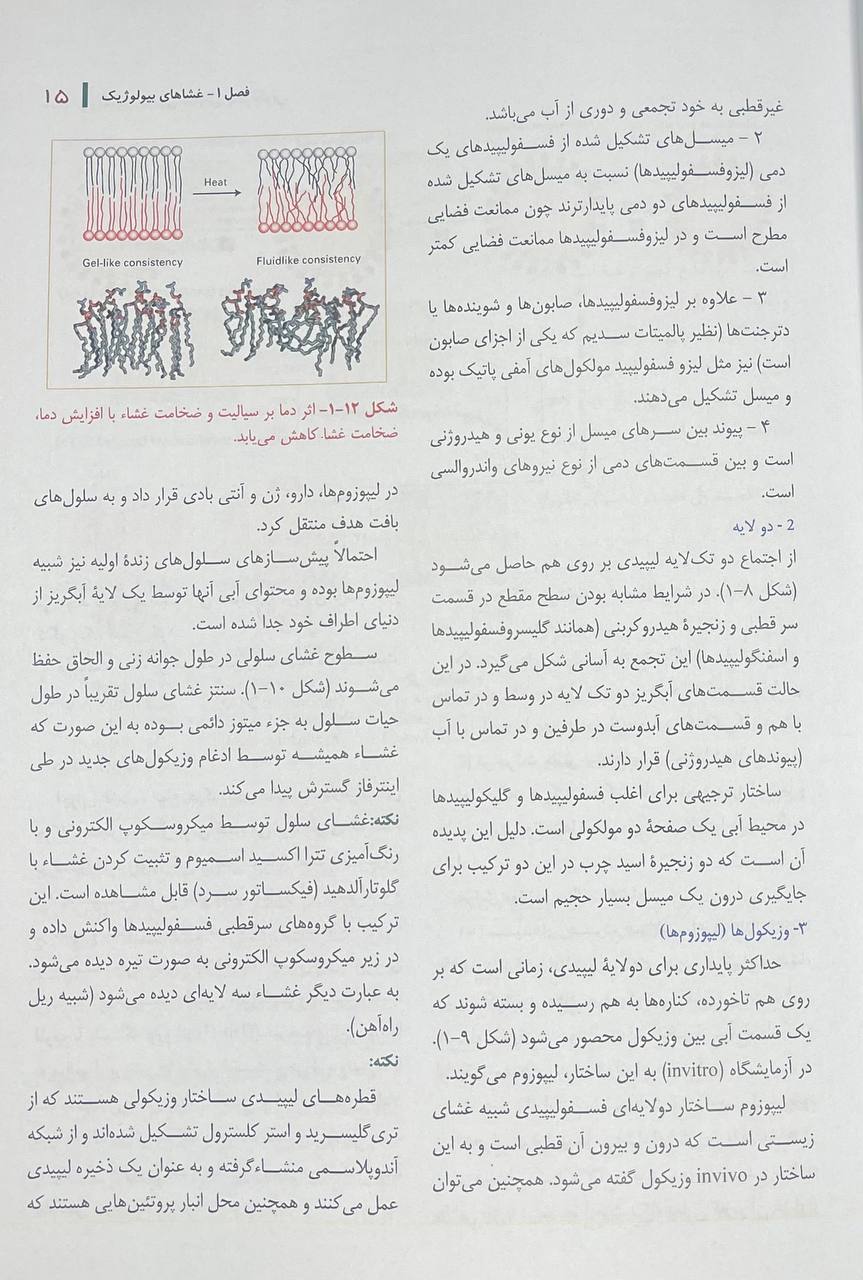 فصل ۱- غشاهای بیولوژیک ۱۵
غیرقطبی به خود تجمعی و دوری از آب می‌باشد.
۲ – میسل‌های تشکیل شده از فسفولیپیدهای یک
دمی (لیزوفسفولیپیدها) نسبت به میسل‌های تشکیل شده
از فسفولیپیدهای دو دمی پایدارترند چون ممانعت فضایی
مطرح است و در لیزوفسفولیپیدها ممانعت فضایی کمتر
است.
۳ – علاوه بر لیزوفسفولیپیدها، صابون‌ها و شوینده‌ها یا
دترجنت‌ها (نظیر پالمیتات سدیم که یکی از اجزای صابون
است) نیز مثل لیزو فسفولیپید مولکول‌های آمفی پاتیک بوده
و میسل تشکیل می‌دهند.
۴ – پیوند بین سرهای میسل از نوع یونی و هیدروژنی
است و بین قسمت‌های دمی از نوع نیروهای واندروالسی
است.
2 - دو لایه
از اجتماع دو تک‌لایه لیپیدی بر روی هم حاصل می‌شود
(شکل ۸-۱). در شرایط مشابه بودن سطح مقطع در قسمت
سر قطبی و زنجیرهٔ هیدروکربنی (همانند گلیسروفسفولیپیدها
و اسفنگولیپیدها) این تجمع به آسانی شکل می‌گیرد. در این
حالت قسمت‌های آبگریز دو تک لایه در وسط و در تماس
با هم و قسمت‌های آبدوست در طرفین و در تماس با آب
(پیوندهای هیدروژنی) قرار دارند.
ساختار ترجیهی برای اغلب فسفولیپیدها و گلیکولیپیدها
در محیط آبی یک صفحهٔ دو مولکولی است. دلیل این پدیده
آن است که دو زنجیرهٔ اسید چرب در این دو ترکیب برای
جایگیری درون یک میسل بسیار حجیم است.
۳- وزیکول‌ها (لیپوزوم‌ها)
حداکثر پایداری برای دولایهٔ لیپیدی، زمانی است که بر
روی هم تاخورده، کناره‌ها به هم رسیده و بسته شوند که
یک قسمت آبی بین وزیکول محصور می‌شود (شکل ۹-۱).
در آزمایشگاه (invitro) به این ساختار، لیپوزوم می‌گویند.
لیپوزوم ساختار دولایه‌ای فسفولیپیدی شبیه غشای
زیستی است که درون و بیرون آن قطبی است و به این
ساختار در invivo وزیکول گفته می‌شود. همچنین می‌توان
Heat
Gel-like consistency
Fluidlike consistency
شکل ۱۲-۱- اثر دما بر سیالیت و ضخامت غشاء با افزایش دما،
ضخامت غشا کاهش می‌یابد.
در لیپوزوم‌ها، دارو، ژن و آنتی بادی قرار داد و به سلول‌های
بافت هدف منتقل کرد.
احتمالاً پیش‌سازهای سلول‌های زندهٔ اولیه نیز شبیه
لیپوزوم‌ها بوده و محتوای آبی آنها توسط یک لایهٔ آبگریز از
دنیای اطراف خود جدا شده است.
سطوح غشای سلولی در طول جوانه زنی و الحاق حفظ
می‌شوند (شکل ۱۰-۱). سنتز غشای سلول تقریباً در طول
حیات سلول به جزء میتوز دائمی بوده به این صورت که
غشاء همیشه توسط ادغام وزیکول‌های جدید در طی
اینترفاز گسترش پیدا می‌کند.
نکته:غشای سلول توسط میکروسکوپ الکترونی و با
رنگ‌آمیزی تترا اکسید اسمیوم و تثبیت کردن غشاء با
گلوتارآلدهید (فیکساتور سرد) قابل مشاهده است. این
ترکیب با گروه‌های سرقطبی فسفولیپیدها واکنش داده و
در زیر میکروسکوپ الکترونی به صورت تیره دیده می‌شود.
به عبارت دیگر غشاء سه لایه‌ای دیده می‌شود (شبیه ریل
راه‌آهن).
نکته:
قطره‌های لیپیدی ساختار وزیکولی هستند که از
تری‌گلیسرید و استر کلسترول تشکیل شده‌اند و از شبکه
آندوپلاسمی منشاءگرفته و به عنوان یک ذخیره لیپیدی
عمل می‌کنند و همچنین محل انبار پروتئین‌هایی هستند که